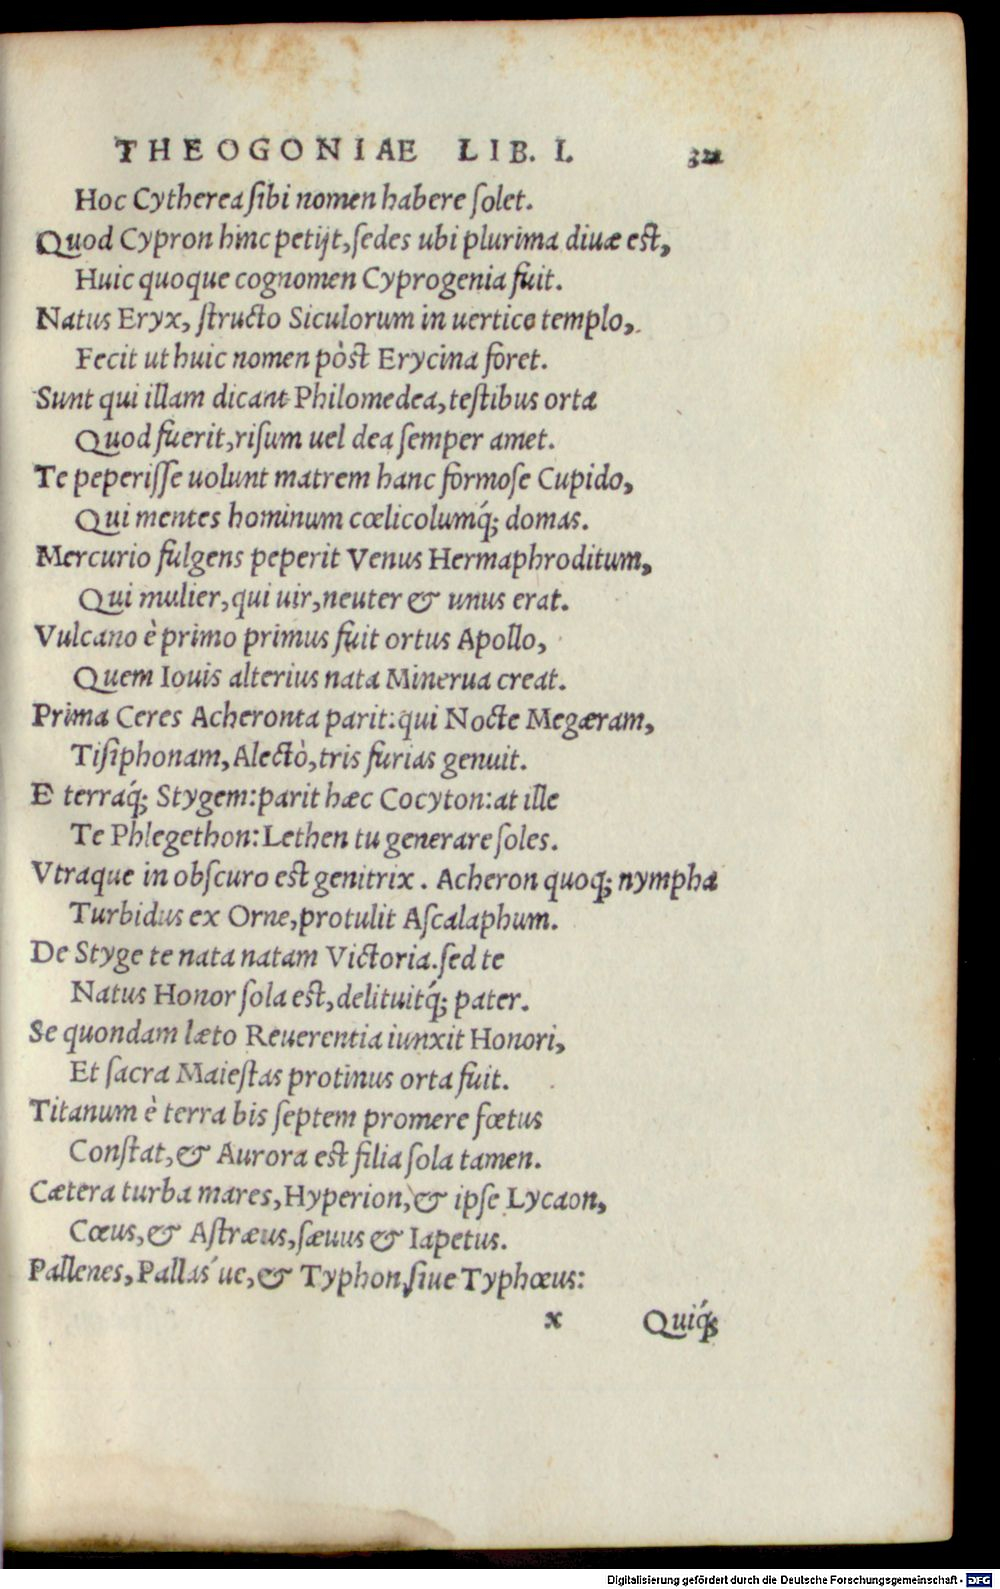 THEOGONIAE LIB. I. 321
Hoc Cytherea ſibi nomen habere ſolet.
Quod Cypron hinc petijt, ſedes ubi plurima diuæ eſt,
Huic quoque cognomen Cyprogenia fuit.
Natus Eryx, ſtructo Siculorum in uertice templo,
Fecit ut huic nomen pòſt Erycina foret.
Sunt qui illam dicant Philomedea, teſtibus orta
Quod fuerit, riſum uel dea ſemper amet.
Te peperiſſe uolunt matrem hanc formoſe Cupido,
Qui mentes hominum cœlicolumq́; domas.
Mercurio fulgens peperit Venus Hermaphroditum,
Qui mulier, qui uir, neuter & unus erat.
Vulcano è primo primus fuit ortus Apollo,
Quem Iouis alterius nata Minerua creat.
Prima Ceres Acheronta parit: qui Nocte Megæram,
Tiſiphonam, Alectò, tris furias genuit.
E terraq́; Stygem: parit hæc Cocyton: at ille
Te Phlegethon: Lethen tu generare ſoles.
Vtraque in obſcuro eſt genitrix. Acheron quoq; nympha
Turbidus ex Orne, protulit Aſcalaphum.
De Styge te nata natam Victoria. ſed te
Natus Honor ſola eſt, delituitq́; pater.
Se quondam læto Reuerentia iunxit Honori,
Et ſacra Maieſtas protinus orta fuit.
Titanum è terra bis ſeptem promere fœtus
Conſtat, & Aurora eſt filia ſola tamen.
Cætera turba mares, Hyperion, & ipſe Lycaon,
Cœus, & Aſtræus, ſæuus & Iapetus.
Pallenes, Pallas ́ue, & Typhon, ſiue Typhœus:
x Quiq́;
Digitalisierung gefördert durch die Deutsche Forschungsgemeinschaft - DFG